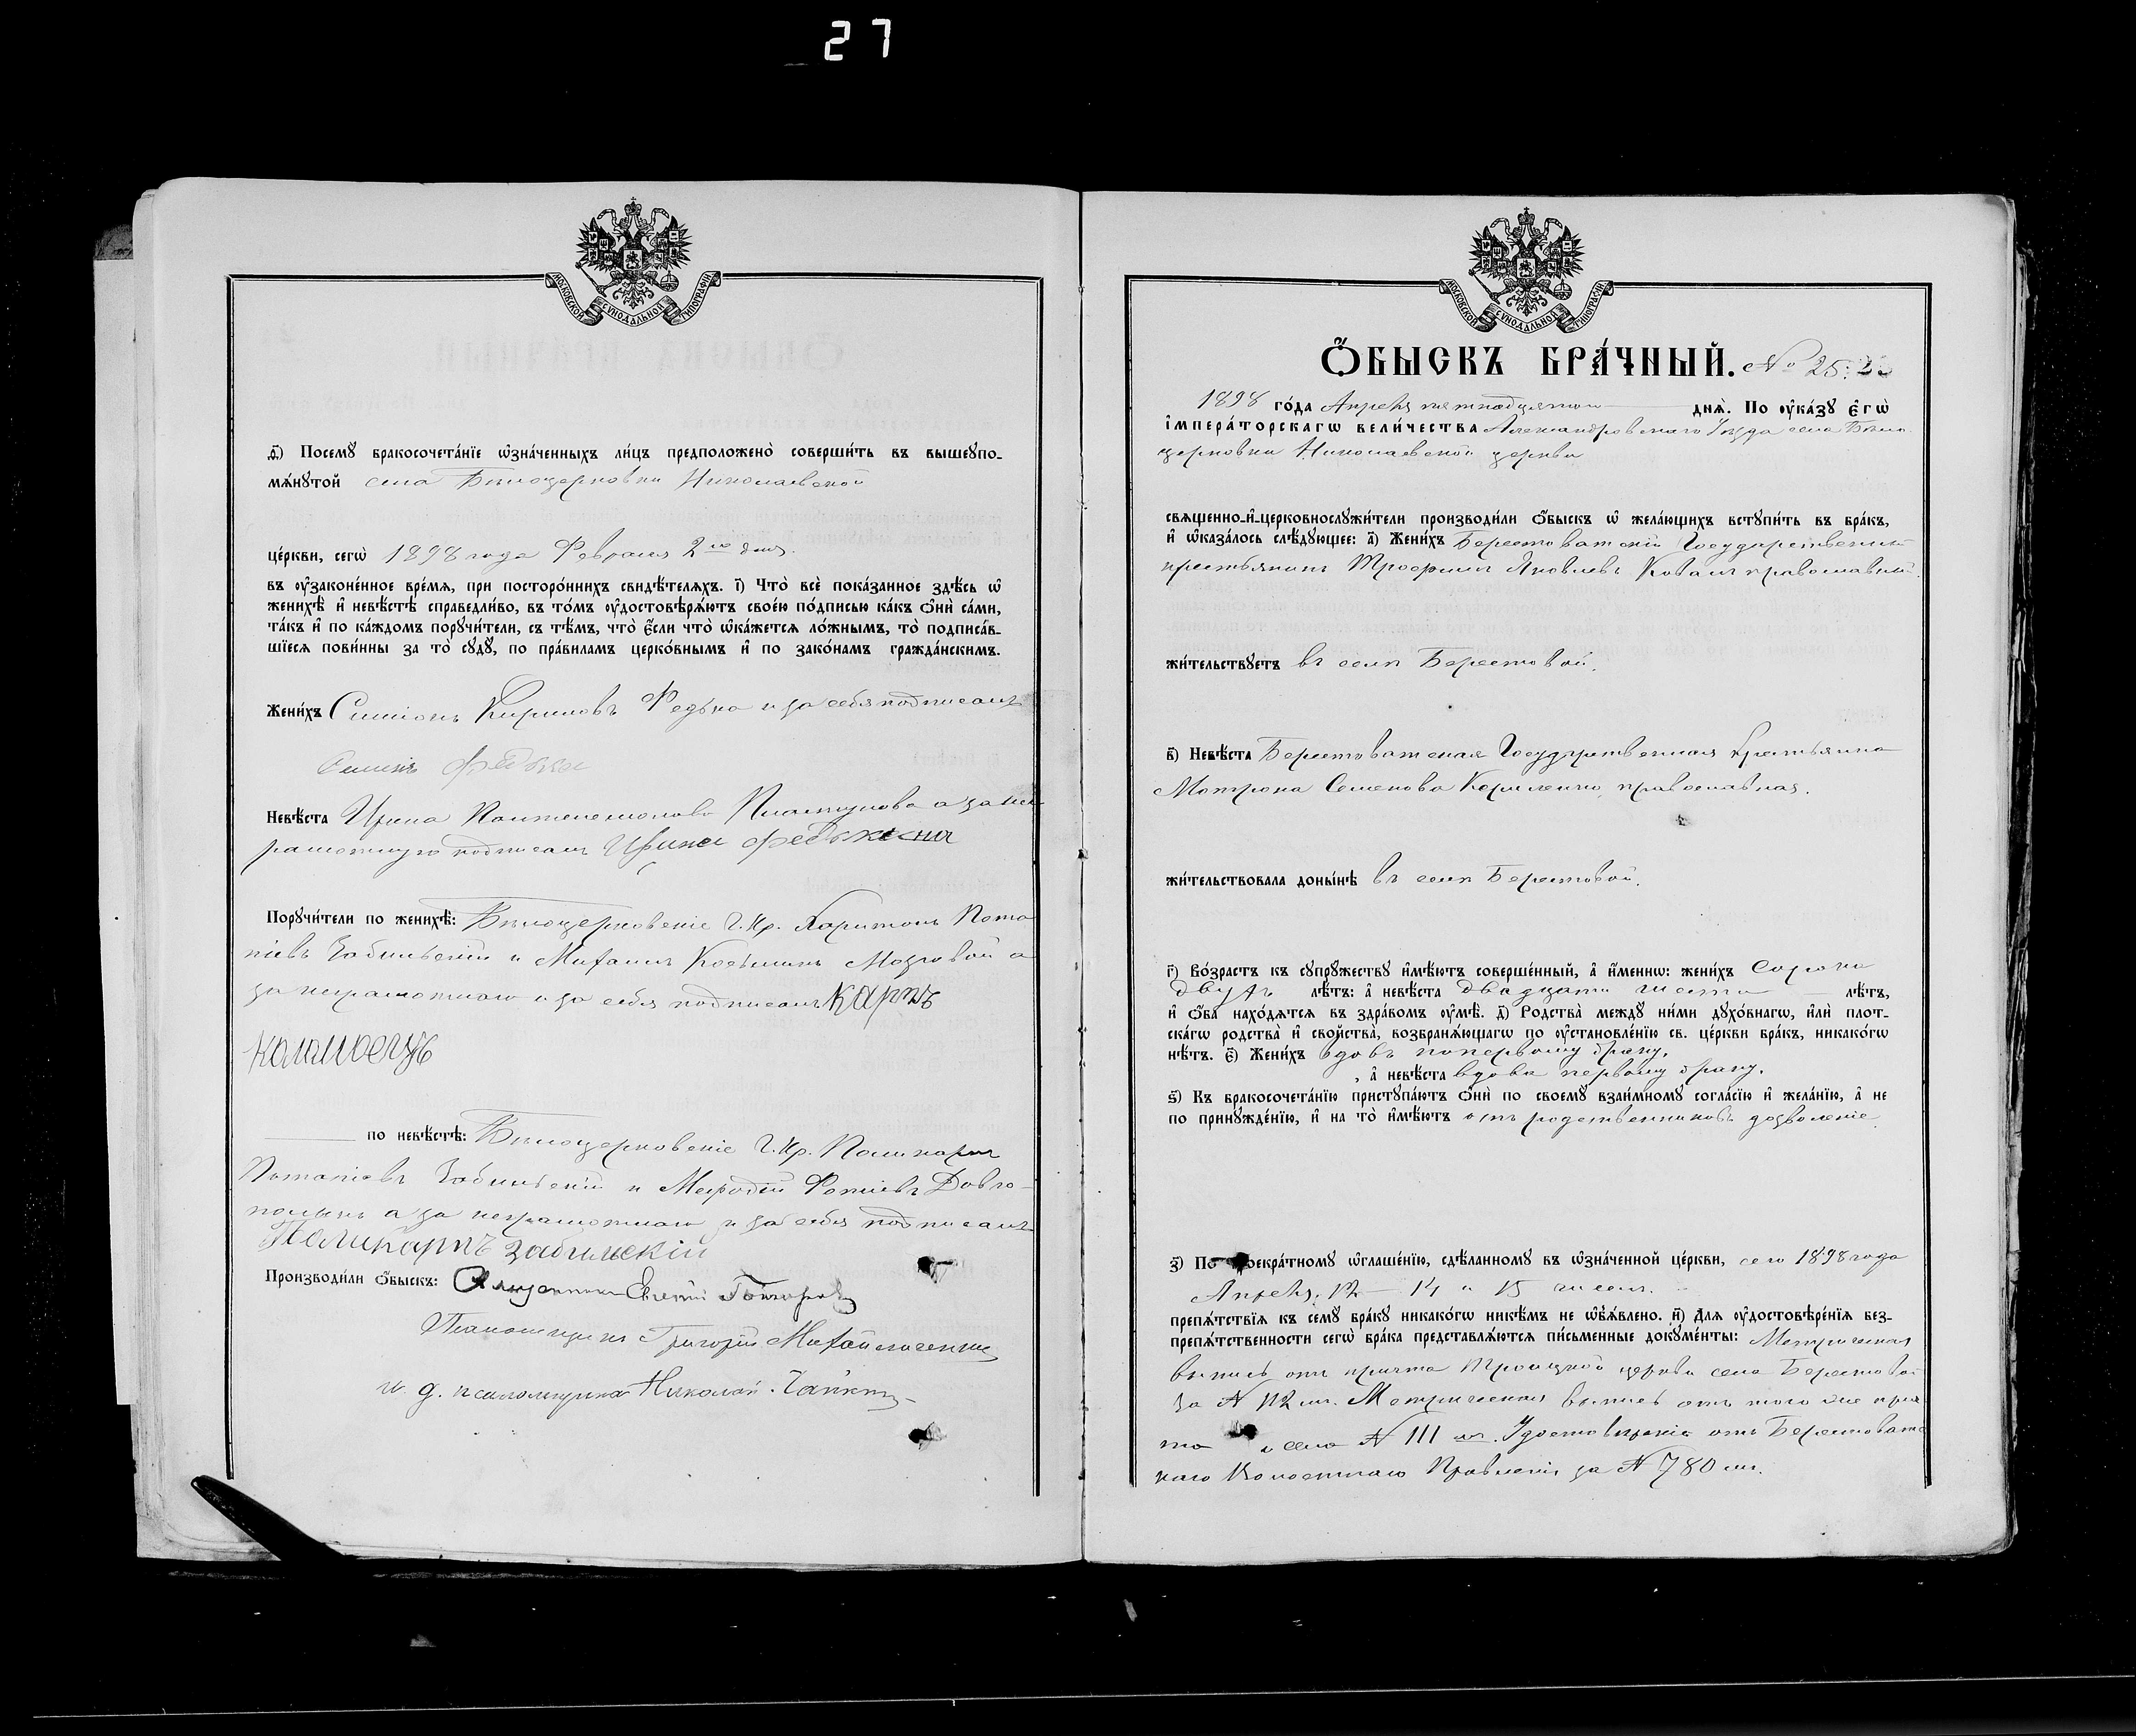 27
МОСКОВСКОЙ СУНОДАЛЬНОЙ ТИПОГРАФІИ
д҃і) Посемꙋ бракосочета́нїе ѡ҆зна́ченныхъ ли́цъ предположено̀ соверши́ть въ вышеꙋпо-
мѧ́нꙋтой села Бѣлоцерковки Николаевской
це́ркви, сегѡ̀ 1898 года Февраля 2го дня.
въ ᲂу҆зако́нённое вре́мѧ, при посторо́ннихъ свидѣ́телѧхъ. і҃) Что̀ всѐ пока́занное здѣ́сь ѡ҆
женихѣ̀ и҆ невѣ́стѣ справедли́во, въ то́мъ ᲂу҆достовѣрѧ́ютъ свое́ю по́дписью ка́къ ѻ҆нѝ са́ми,
та́къ и҆ по ка́ждомъ порꙋчи́тели, съ тѣ́мъ, что̀ є҆́сли что̀ ѡ҆ка́жетсѧ ло́жнымъ, то̀ подписа́в-
шїесѧ пови́нны за то̀ сꙋдꙋ̀, по пра́виламъ церко́внымъ и҆ по зако́намъ гражда́нскимъ.
Жени́хъ Симіонъ Кириловъ Федька и за себя подписалъ
Семенъ Федька
Невѣ́ста Ирина Пантелемонова а за не
рамотную подписалъ
Порꙋчи́тели по женихѣ̀: Бѣлоцерковскіе Г. Кр. Харитонъ Пота
піевъ Забильскій и Михаилъ Косьминъ Мозговой а
за неграмотнаго и за себя подписалъ Карпъ
Коломоецъ
по невѣ́стѣ: Бѣлоцерковскіе Г. Кр. Поликарпъ
Потапіевъ Забильскій и Мефодій Фотіевъ Довго-
полый а за неграмотнаго и за себя подписалъ
Поликарпъ Забильскій
Производи́ли ѻ҆́быскъ: Священникъ Евгеній
Григорій Михайличенко
и. д. псаломщика Николай
МОСКОВСКОЙ СУНОДАЛЬНОЙ ТИПОГРАФІИ
Ѻ҆́БЫСКЪ БРА́ЧНЫЙ. № 25.
1898 го́да Апрѣля пятнадцятого днѧ̀. По ᲂу҆ка́зꙋ є҆гѡ̀
і҆мпера́торскагѡ вели́чества Александровскаго Уѣзда села Бѣло
церковки Николаевской церкви
свѧщенно-и҆-церковнослꙋжи́тели производи́ли ѻ҆́быскъ ѡ҆ жела́ющихъ встꙋпи́ть въ бра́къ,
и҆ ѡ҆каза́лось слѣ́дꙋющее: а҃) Жени́хъ Берестоватскій Государственный
крестьянинъ Трофимъ Яковлевъ Коваль православный.
жи́тельствꙋетъ въ селѣ Берестовой.
в҃) Невѣ́ста Берестоватская Государственная крестьянка
Мотрона Семенова Корниенко, православная.
жи́тельствовала доны́нѣ въ селѣ Берестовой.
г҃) Во́зрастъ къ сꙋпрꙋжествꙋ и҆мѣ́ютъ соверше́нный, а҆ и҆́меннѡ: жени́хъ сорока
двухъ лѣ́тъ: а҆ невѣ́ста двадцати шести лѣ́тъ,
и҆ ѻ҆́ба нахо́дѧтсѧ въ здра́вомъ ᲂу҆мѣ̀. д҃) Родства̀ между ни́ми дꙋхо́внагѡ, и҆лѝ плот-
ска́гѡ родства̀ и҆ сво́йства̀, возбранѧ́ющагѡ по ᲂу҆становле́нїю св. це́ркви бра́къ, никако́гѡ
нѣ́тъ. є҃) Жени́хъ вдовъ поперьвому браку,
, а҆ невѣ́ста вдова первому браку.
ѕ҃) Къ бракосочета́нїю пристꙋпа́ютъ ѻ҆нѝ по своемꙋ взаи́мномꙋ согла́сїю и҆ жела́нїю, а҆ не
по принꙋжде́нїю, и҆ на то̀ и҆мѣ́ютъ отъ родственниковъ дозволеніе
з҃) По троекра́тномꙋ ѡ҆глаше́нїю, сдѣ́ланномꙋ въ ѡ҆зна́ченной це́ркви, сего 1898 года
Апрѣля, 12 – 14 и 15 чиселъ.
препѧ́тствїѧ къ семꙋ̀ бра́кꙋ никако́гѡ никѣ́мъ не ѡ҆б̾ѧ́влено. и҃) Длѧ̀ ᲂу҆достовѣре́нїѧ без-
препѧ́тственности сегѡ̀ бра́ка представлѧ́ютсѧ пи́сьменные докꙋме́нты: Метрическая
выпись отъ причта Троицкой церкви села Берестовой
за № 112 мъ. Метрическая выпись отъ того же прич
та села № 111 мъ. Удостовѣреніе отъ Берестоватс
каго Волостнаго Правленія за № 780 мъ.